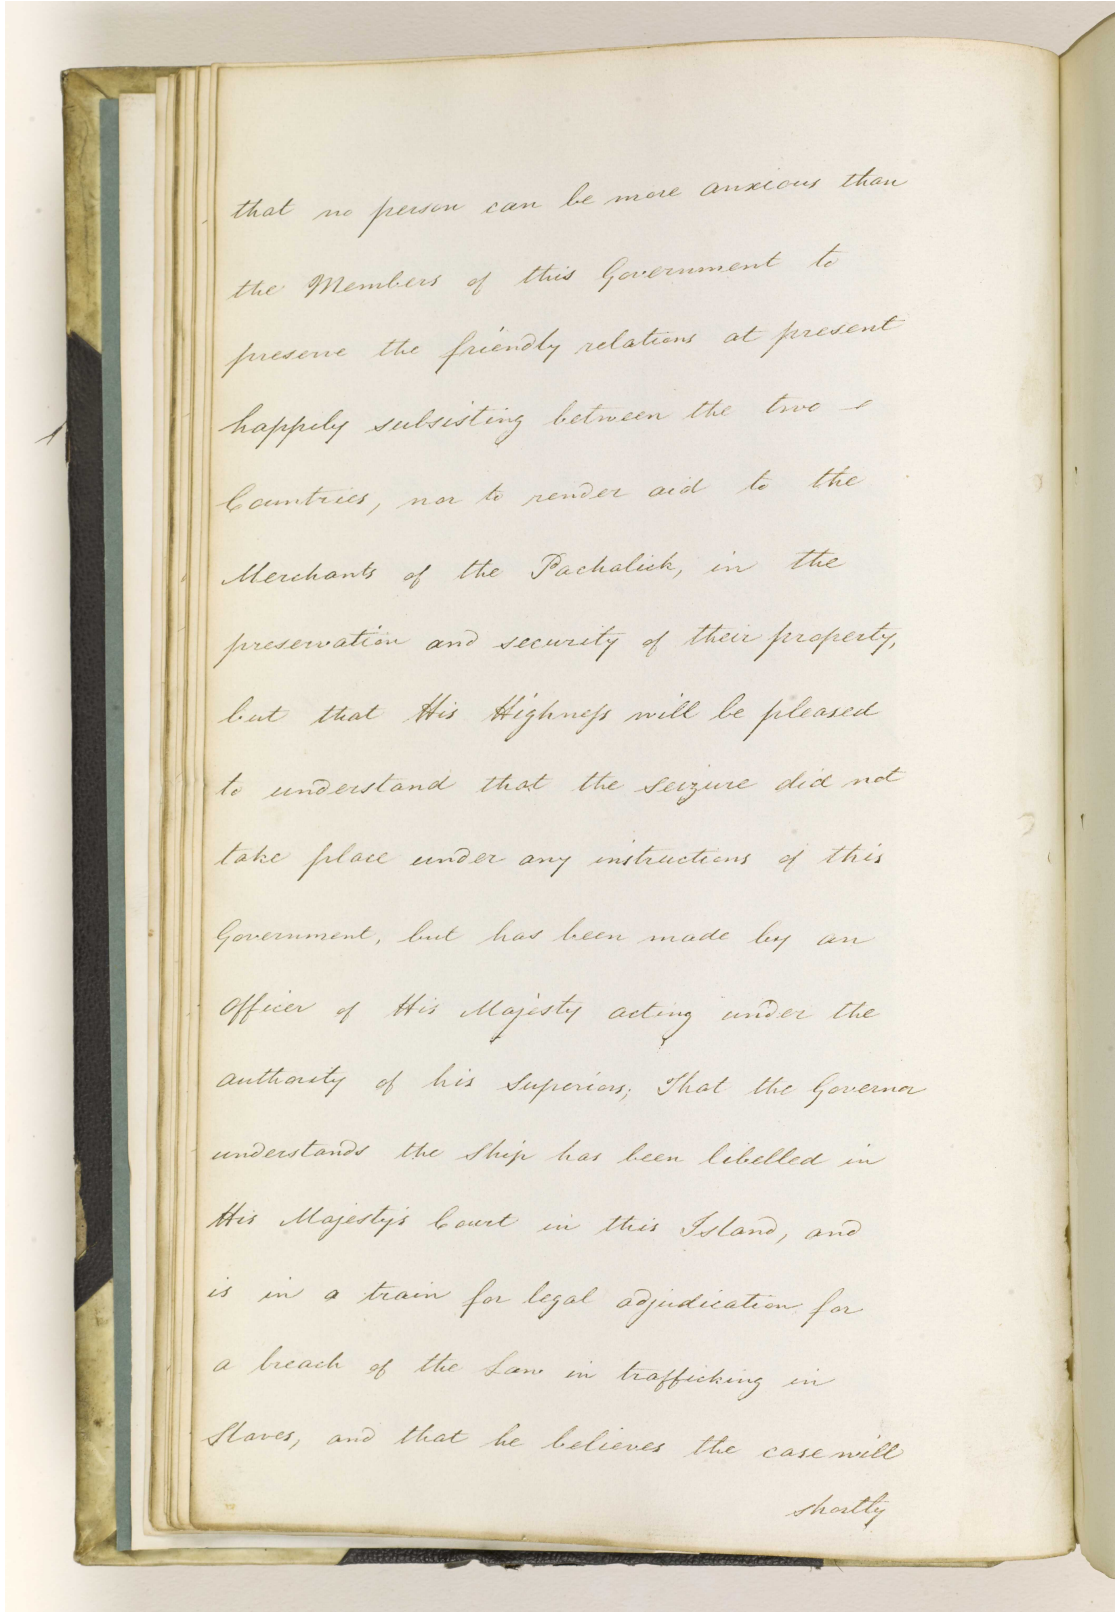 that no person can be more anxious than
the Members of this Government to
preserve the friendly relations at present
happily subsisting between the two
Countries, nor to render aid to the
Merchants of the Pachalick, in the
preservation and security of their property,
but that His Highneſs will be pleased
to understand that the seizure did not
take place under any instructions of this
Government, but has been made by an
Officer of His Majesty acting under the
authority of his Superiors; That the Governor
understands the Ship has been libelled in
His Majesty's Court in this Island, and
is in a train for legal adjudication for
a breach of the Law in trafficking in
Slaves, and that he believes the case will
shortly